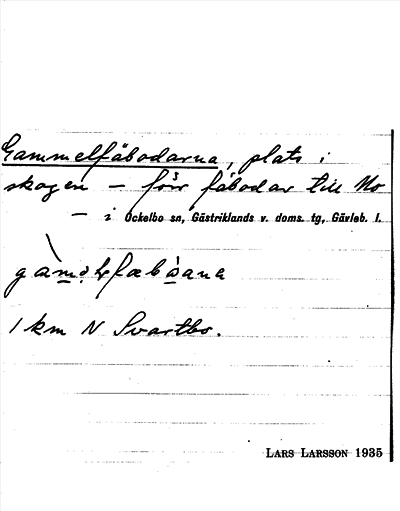 Gammelfäbodarna, plats i
skogen – förr fäbodar till Mo
– i Ockelbo sn, Gästriklands v. doms. tg, Gävleb. l.
1 km N Svartbo.
LARS LARSSON 1935